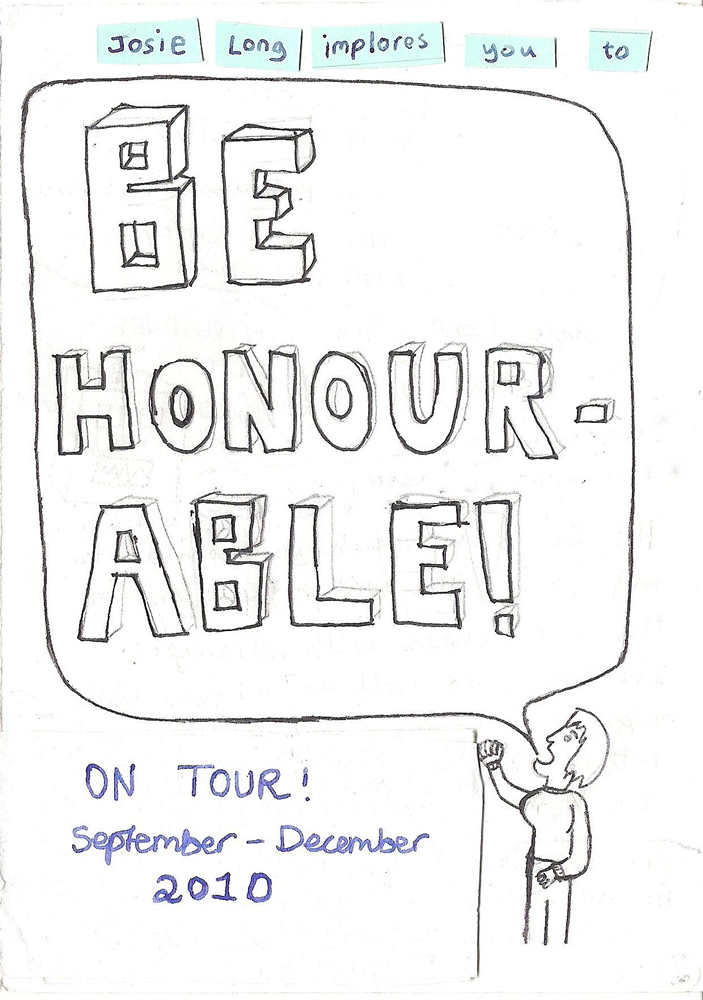 Josie Long implores you to
BE
HONOUR-
ABLE!
ON TOUR!
September - December
2010